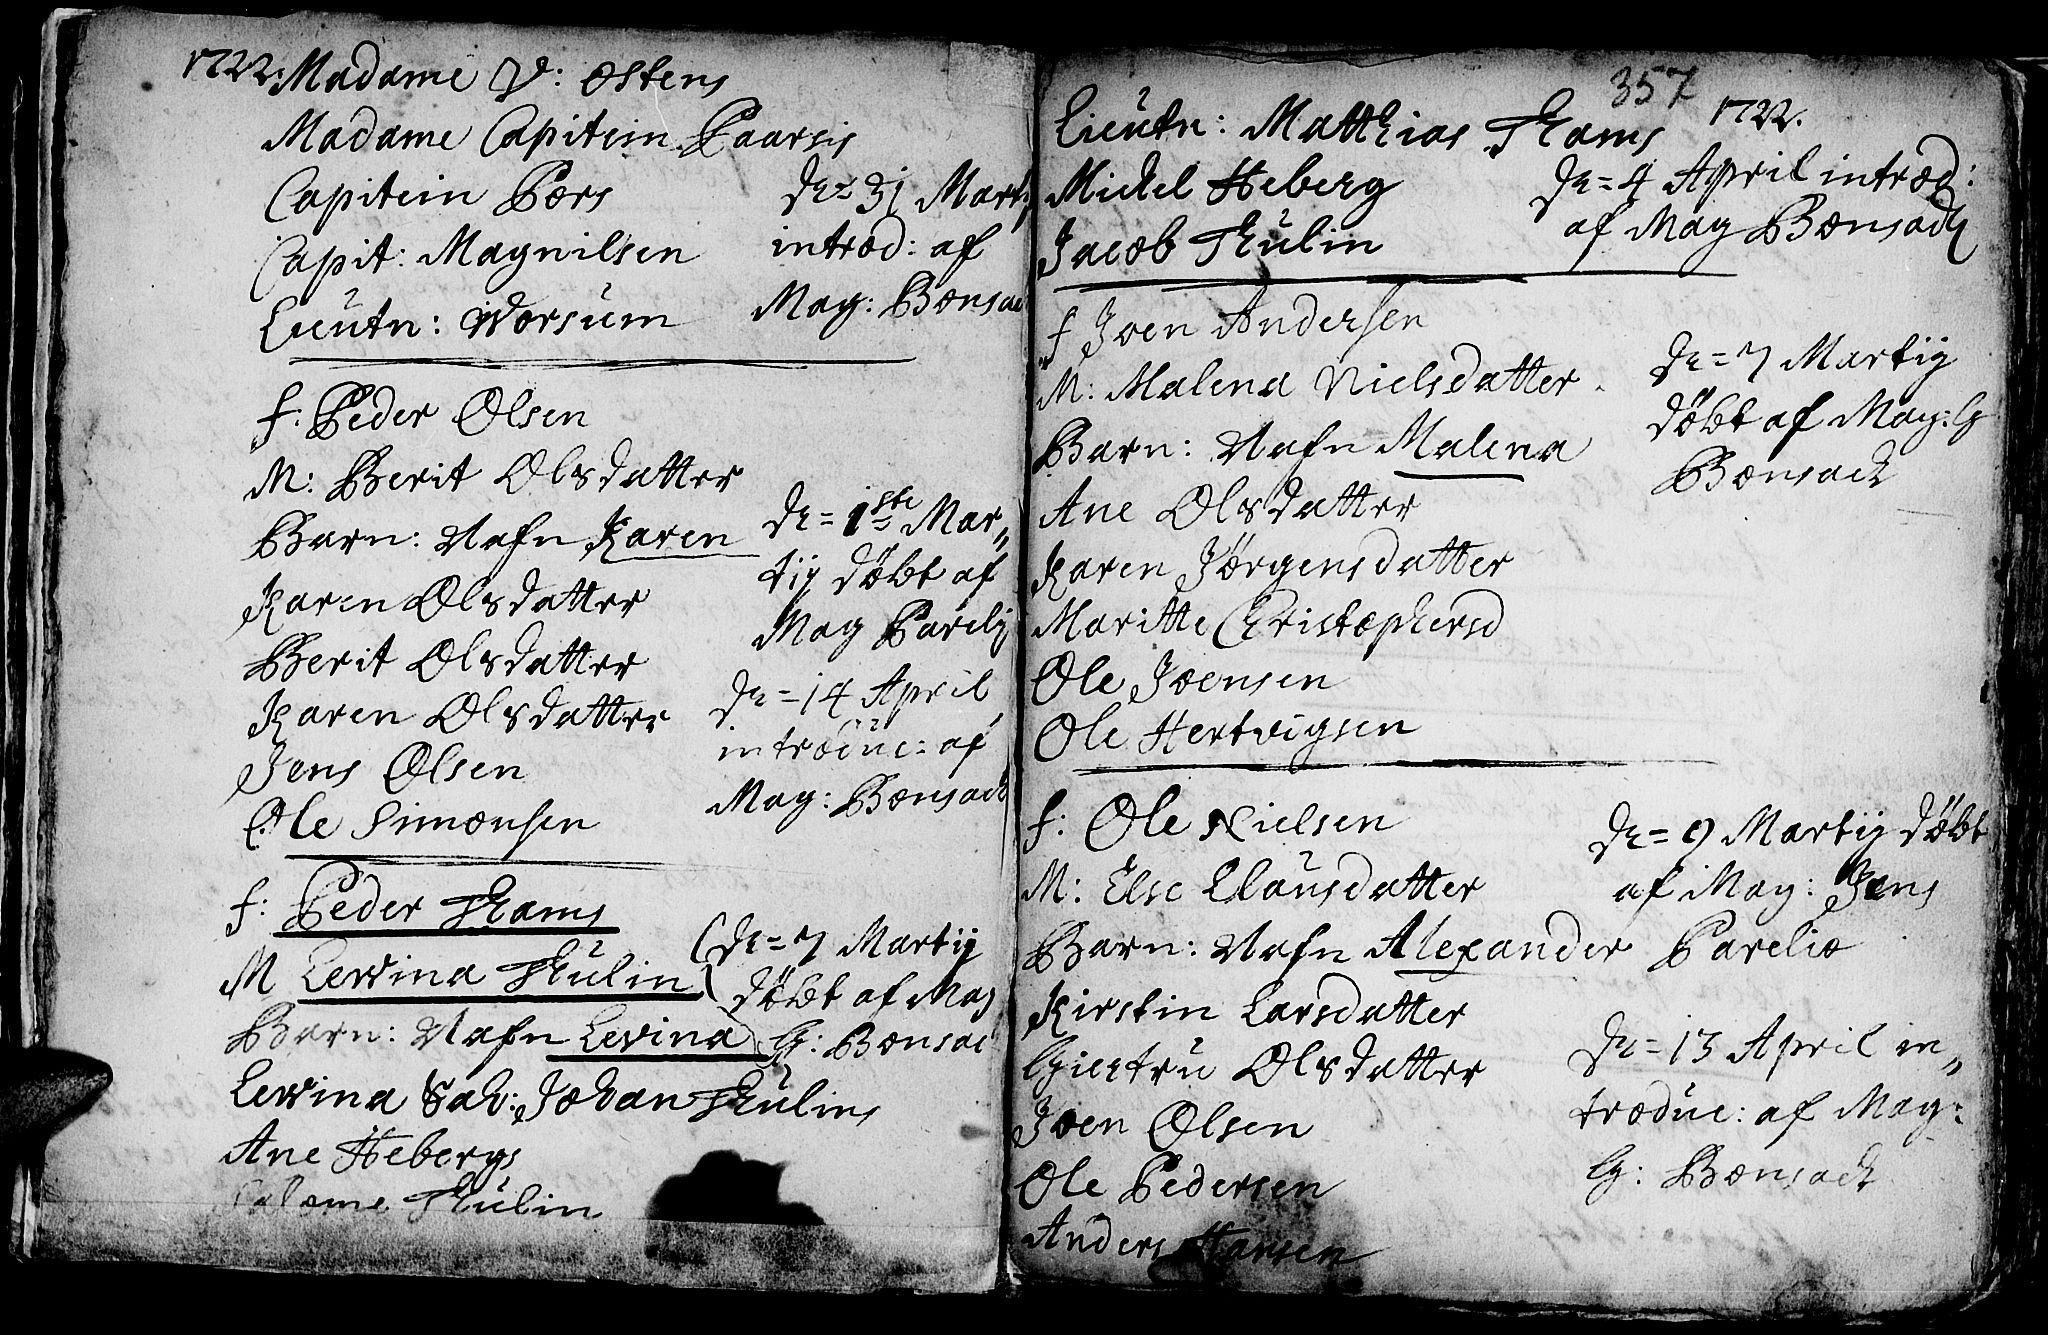 1722. Madame V: Østens
Madame Capitein Paarsis
Capitein Pors
Capit: Magnilsen
Lieutn: Worsum
Dn = 31 Martij
introd: af
Mag: Bonsack
f: Peder Olsen
M: Berit Olsdatter
Barn: Nafn Karen
Karen Olsdatter
Berit Olsdatter
Karen Olsdatter
Jens Olsen
Ole Simonsen
Dn = 1ste Mar„
tij döbt af
Mag Parelij
Dn = 14 April
introduc: af
Mag: Bonsack
f: Peder Thams
M Levina Thulin
Barn: Nafn Levina
Levina Sal: Johan Thulins
Ane Hebergs
Salome Thulin
Dn = 7 Martij
döbt af Mag
G: Bonsack
357
1722.
Lieutn: Matthias Thams
Mickel Heberg
Jacob Thulin
Dn = 4 April introd:
af Mag Bonsack
f Joen Andersen
M: Malena Nielsdatter
Barn: Nafn Malena
Ane Olsdatter
Karen Jörgensdatter
Maritte Christophersd
Ole Joensen
Ole Hertvigsen
Dn = 7 Martij
döbt af Mag: G
Bonsack
f: Ole Nielsen
M: Else Clausdatter
Barn: Nafn Alexander
Kirstin Larsdatter
Giertru Olsdatter
Joen Olsen
Ole Pedersen
Anders Hansen
Dn = 9 Martij döbt
af Mag: Jens
Parelio
Dn = 13 April in„
troduc: af Mag:
G: Bonsack